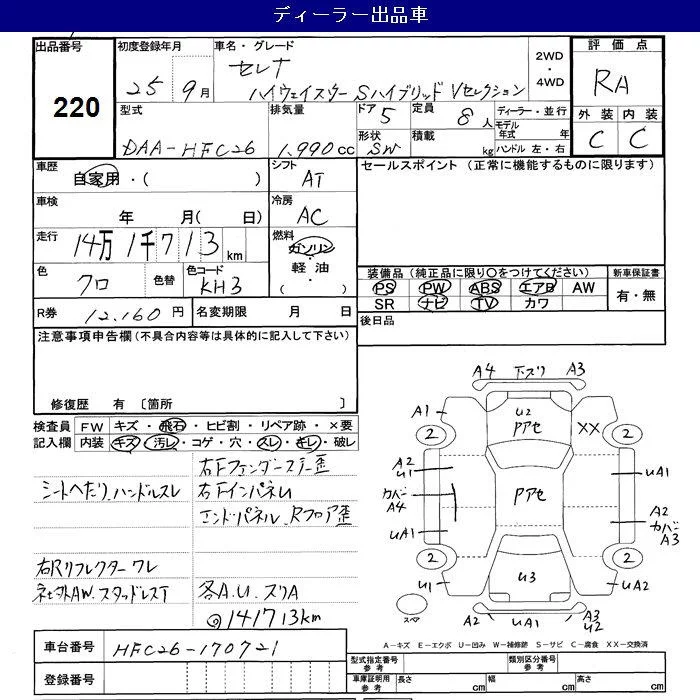 ディーラー出品車
出品番号 220
初度登録年月 25年 9月
車名・グレード セレナ
ハイウェイスター Sハイブリッド Vセレクション
2WD・4WD
評価点 RA
外装 C 内装 C
型式 DAA-HFC26
排気量 1,990cc
ドア 5
形状 SW
定員 8人
積載 kg
ディーラー・並行
モデル年式 年
ハンドル 左・右
車歴 自家用・( )
シフト AT
車検 年 月( 日)
冷房 AC
走行 14万1千713km
燃料 ガソリン・軽油・( )
色 クロ
色替
色コード KH3
R券 12,160円
名変期限 月 日
セールスポイント (正常に機能するものに限ります)
装備品(純正品に限り○をつけてください)
新車保証書
PS PW ABS エアB AW
SR ナビ TV カワ
有・無
後日品
注意事項申告欄(不具合内容等は具体的に記入して下さい)
修復歴 有 〔箇所 〕
検査員記入欄
FW キズ・飛石・ヒビ割・リペア跡・×要
内装 キズ・汚レ・コゲ・穴・スレ・キレ・破レ
右Fフェンダーステー歪
シートヘタリ、ハンドルスレ
右FインパネU
エンドパネル、Rフロア歪
右Rリフレクターワレ
社外AW、スタッドレスT
各A.U.スリA
◎141713km
A4 下ズリ A3
A1 U2 XX
Pアセ
2 2
A2 U1
UA1
カバーA4
Pアセ
A2
カバーA3
UA1
2 2
U1 U3 UA2
スペア
A2 UA1 A3 U2
A-キズ E-エクボ U-凹み W-補修跡 S-サビ C-腐食 XX-交換済
車台番号 HFC26-170721
登録番号
型式指定番号 参考
類別区分番号 参考
車庫証明用 参考
長さ cm 幅 cm 高さ cm